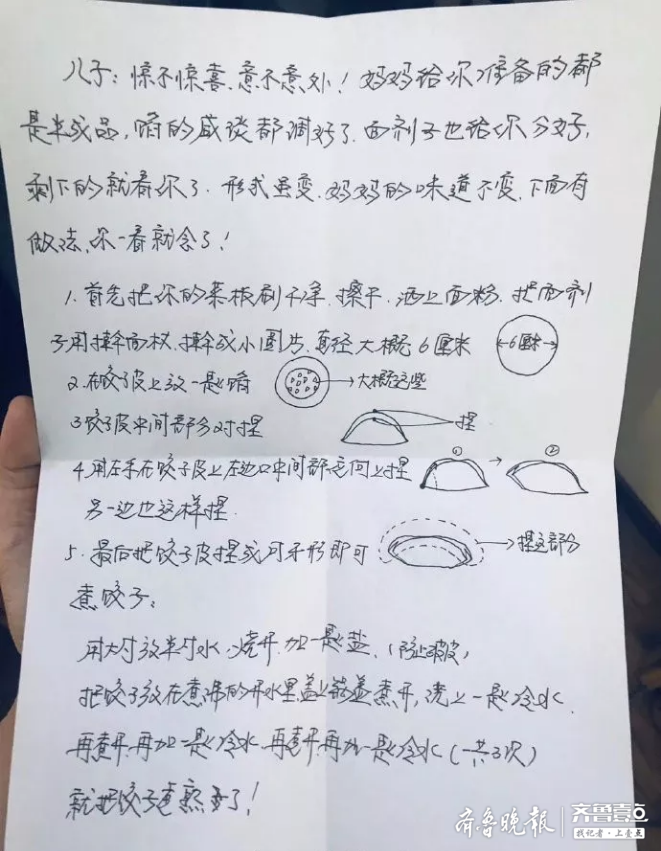 儿子:惊不惊喜、意不意外!妈妈给你准备的都
是半成品,馅的咸淡都调好了.面剂子也给你分好,
剩下的就看你了.形式虽变,妈妈的味道不变,下面有
做法,你一看就会了!
1.首先把你的菜板刷干净.擦干.洒上面粉.把面剂
子用擀面杖.擀成小圆片、直径大概6厘米
6厘米
2.在饺子皮上放一匙馅
大概这些
3饺子皮中间部分对捏
捏
4.用左手在饺子皮上左边口中间部位向上捏
① → ②
另一边也这样捏.
5.最后把饺子皮捏成月牙形即可
捏这部分
煮饺子:
用大锅放半锅水.烧开.加一匙盐.(防止破皮)
把饺子放在煮沸的开水里盖上锅盖煮开,浇上一匙冷水.
再煮开.再加一匙冷水再煮开.再加一匙冷水(一共3次)
就把饺子煮熟了!
齐鲁晚报
齐鲁壹点
找记者·上壹点